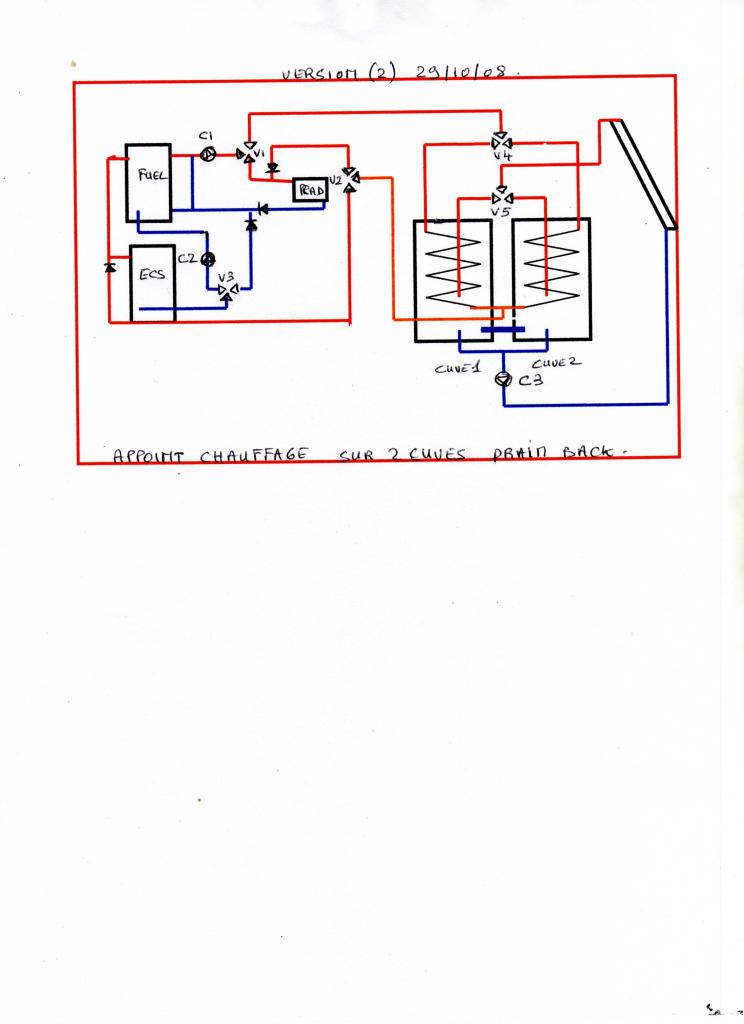 VERSION (2) 29/10/08.
C1
V1
V4
FUEL
RAD
V2
V5
C2
ECS
V3
CUVE1
CUVE2
C3
APPOINT CHAUFFAGE SUR 2 CUVES DRAIN BACK.